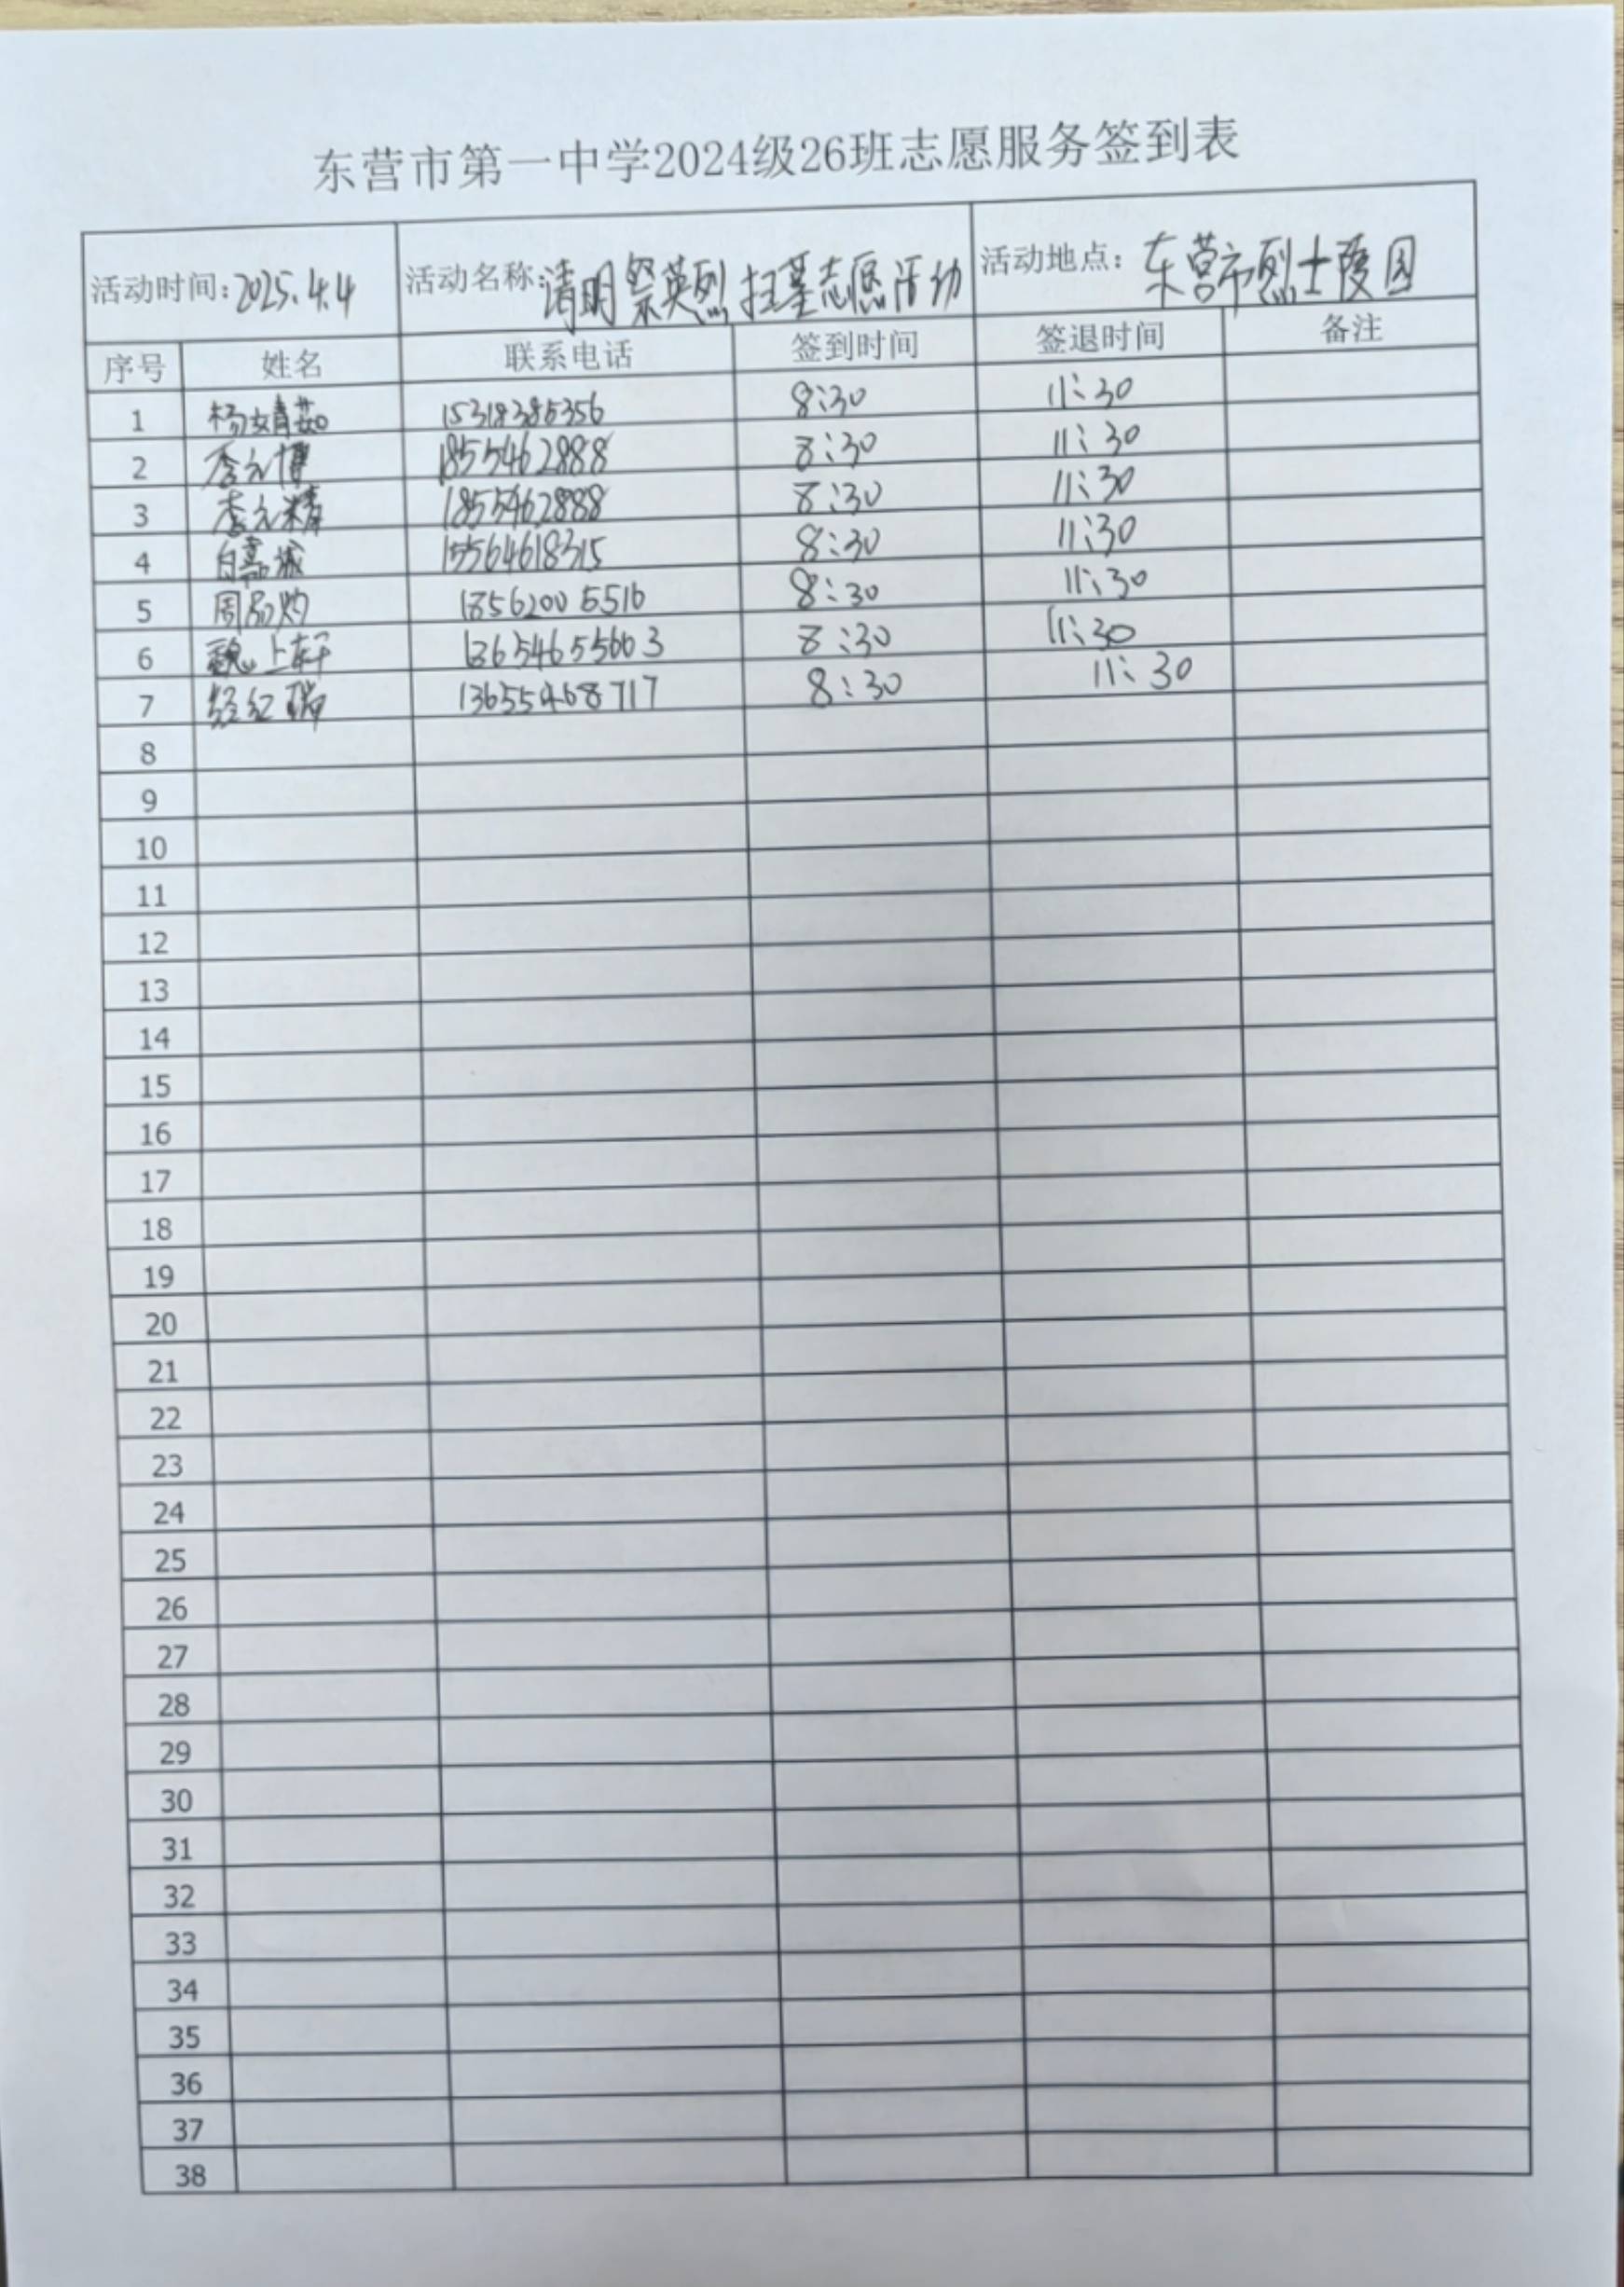 东营市第一中学2024级26班志愿服务签到表
活动时间:2025.4.4 活动名称:清明祭英烈 扫墓志愿活动 活动地点:东营市烈士陵园
序号 姓名 联系电话 签到时间 签退时间 备注
1 杨婧茹 15318385356 8:30 11:30
2 李元博 1855462888 8:30 11:30
3 李元精 1855462888 8:30 11:30
4 白嘉诚 15564618315 8:30 11:30
5 周品灼 18562005510 8:30 11:30
6 魏上轩 8:30 11:30
7 红瑞 13655468717 8:30 11:30
8
9
10
11
12
13
14
15
16
17
18
19
20
21
22
23
24
25
26
27
28
29
30
31
32
33
34
35
36
37
38